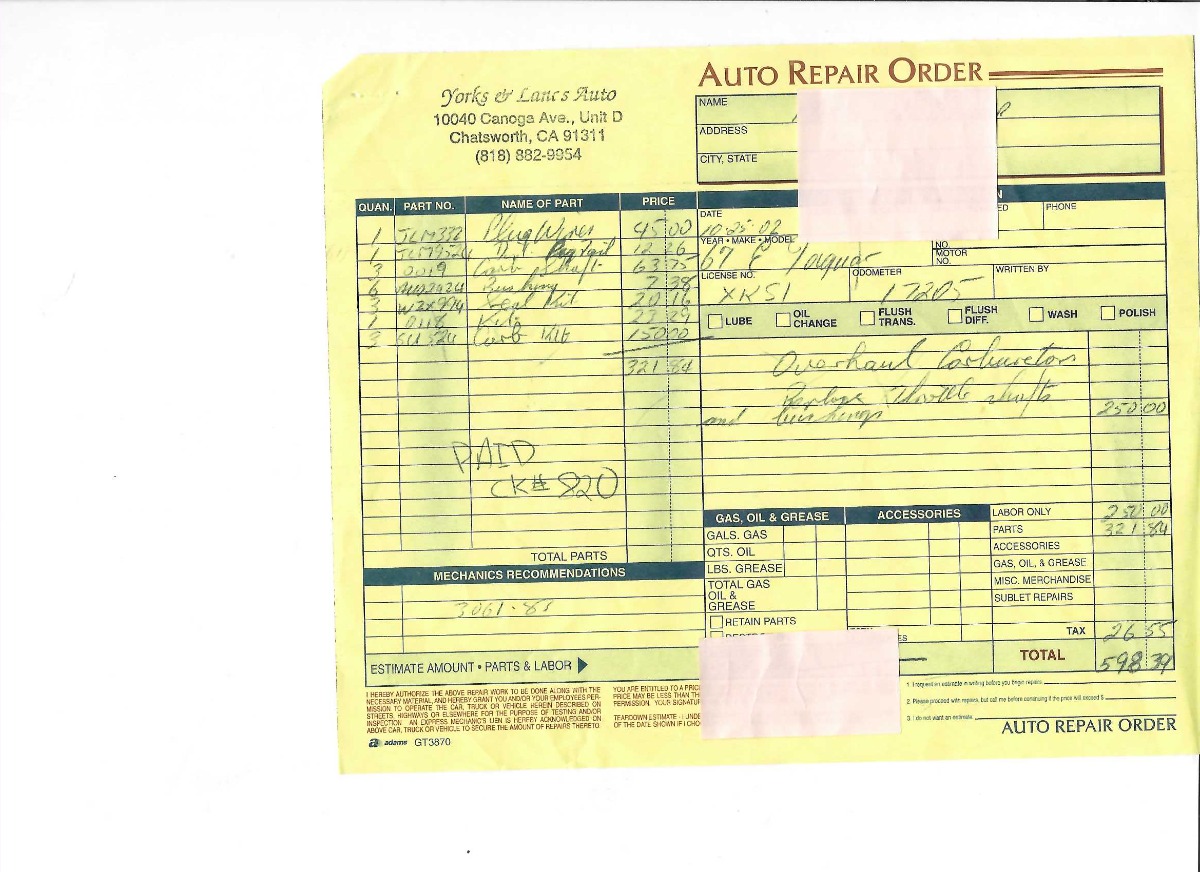 AUTO REPAIR ORDER
Yorks & Lancs Auto
10040 Canoga Ave., Unit D
Chatsworth, CA 91311
(818) 882-9954
NAME
ADDRESS
CITY, STATE
QUAN. PART NO. NAME OF PART PRICE
1 Plug Wires 45.00
1 12.26
3 0019 Carb Shaft 63.75
6 Bushing 7.38
3 Seal Kit 20.16
1 0118 Kit 23.29
3 Carb Kit 150.00
321.84
DATE
10-25-02
PHONE
YEAR • MAKE • MODEL
67 E Jaguar
NO.
MOTOR NO.
LICENSE NO.
XK51
ODOMETER
17205
WRITTEN BY
LUBE
OIL CHANGE
FLUSH TRANS.
FLUSH DIFF.
WASH
POLISH
Overhaul Carburetors
Replace throttle shafts
and bushings 250.00
PAID
CK# 820
TOTAL PARTS
MECHANICS RECOMMENDATIONS
3061.83
ESTIMATE AMOUNT • PARTS & LABOR
GAS, OIL & GREASE
ACCESSORIES
GALS. GAS
QTS. OIL
LBS. GREASE
TOTAL GAS
OIL &
GREASE
RETAIN PARTS
LABOR ONLY 250.00
PARTS 321.84
ACCESSORIES
GAS, OIL, & GREASE
MISC. MERCHANDISE
SUBLET REPAIRS
TAX 26.55
TOTAL 598.39
I HEREBY AUTHORIZE THE ABOVE REPAIR WORK TO BE DONE ALONG WITH THE
NECESSARY MATERIAL, AND HEREBY GRANT YOU AND/OR YOUR EMPLOYEES PER-
MISSION TO OPERATE THE CAR, TRUCK OR VEHICLE HEREIN DESCRIBED ON
STREETS, HIGHWAYS OR ELSEWHERE FOR THE PURPOSE OF TESTING AND/OR
INSPECTION. AN EXPRESS MECHANIC'S LIEN IS HEREBY ACKNOWLEDGED ON
ABOVE CAR, TRUCK OR VEHICLE TO SECURE THE AMOUNT OF REPAIRS THERETO.
YOU ARE ENTITLED TO A PRIC
PRICE MAY BE LESS THAN TH
PERMISSION. YOUR SIGNATUR
TEARDOWN ESTIMATE - I UNDE
OF THE DATE SHOWN IF I CHO
1. I request an estimate in writing before you begin repairs.
2. Please proceed with repairs, but call me before continuing if the price will exceed $
3. I do not want an estimate.
adams GT3870
AUTO REPAIR ORDER